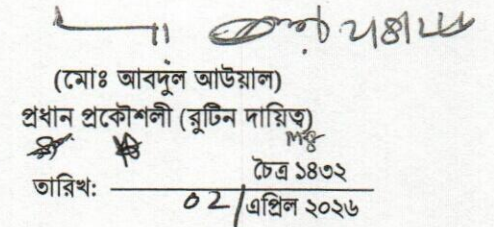 (মোঃ আবদুল আউয়াল)
প্রধান প্রকৌশলী (রুটিন দায়িত্ব)
চৈত্র ১৪৩২
তারিখ:
02/এপ্রিল ২০২৬